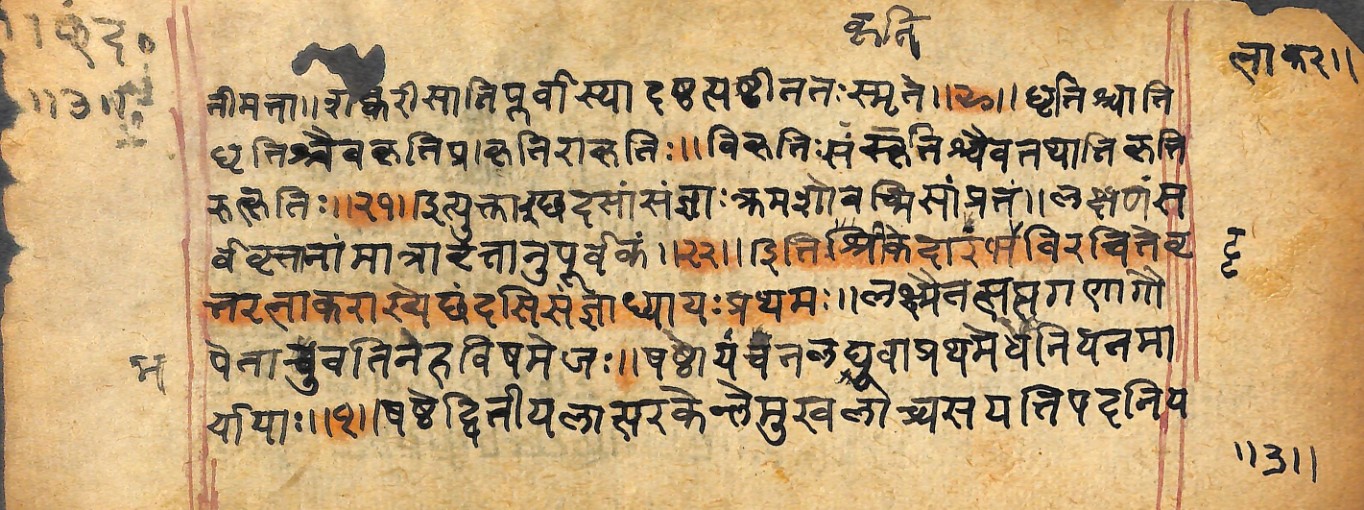 कृति
त्नाकर॥
॥३॥
तीमता॥शक्वरी सातिपूर्वा स्यादष्ट्यत्यष्टी ततः स्मृते॥२०॥धृतिश्चाति
धृतिश्चैव कृतिप्राकृतिराकृतिः॥विकृतिः संस्कृतिश्चैव तथातिकृति
रुत्कृतिः॥२१॥इत्युक्ताश्छंदसां संज्ञाः क्रमशो वच्मि सांप्रतं॥लक्षणं स
र्ववृत्तानां मात्रावृत्तानुपूर्वकं॥२२॥इति श्रीकेदारभट्टविरचिते वृ
त्तरत्नाकराख्ये छंदसि संज्ञाध्यायः प्रथमः॥लक्ष्मैतत्सप्त गणा गो
पेता भवति नेह विषमे जः॥षष्ठोयं च नलघू वा प्रथमेर्धे नियतमा
र्यायाः॥१॥षष्ठे द्वितीयलात्परके न्ले मुखलाच्च सयतिपदनिय
॥३॥